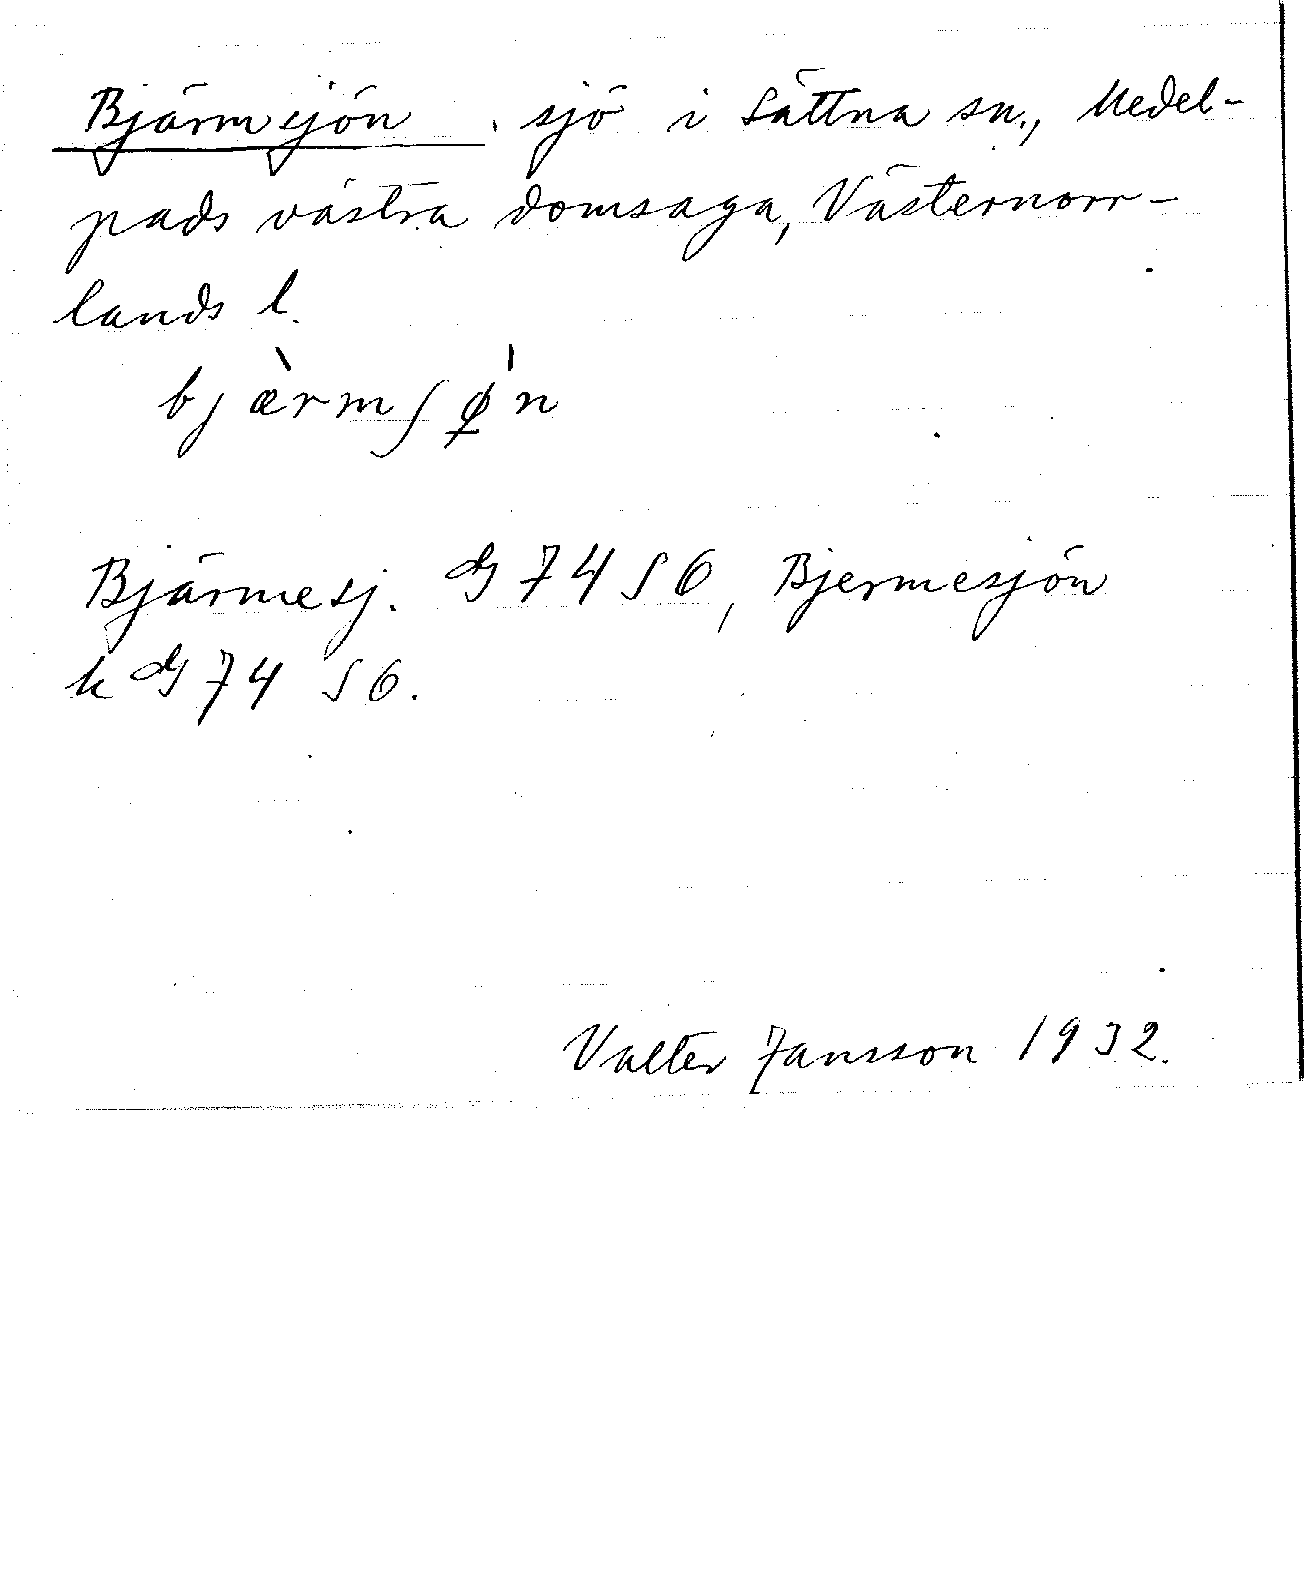 Bjärmsjön, sjö i Sättna sn., Medel-
pads västra domsaga, Västernorr-
lands l.
bjæ̀rmʃø̀n
Bjärmesj. G 74 S6, Bjermesjön
k G 74 S6.
Valter Jansson 1932.